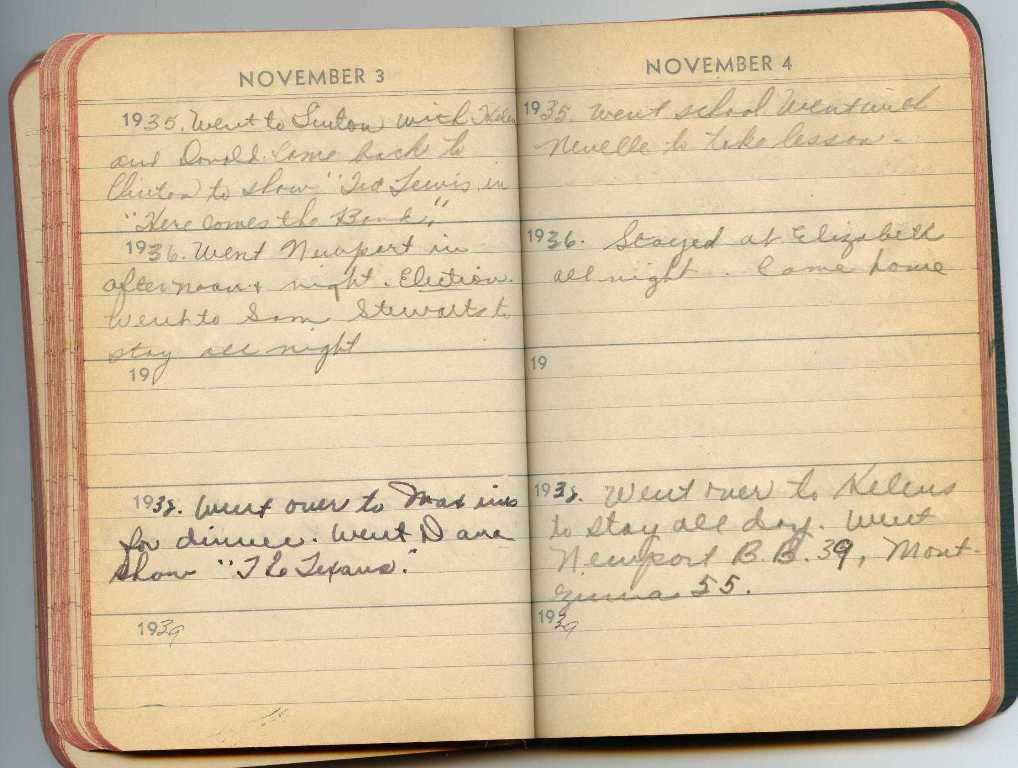 NOVEMBER 3
1935. Went to Linton with Helen
and Donald. Came back to
Clinton to show "Ted Lewis in
"Here comes the Band",
1936. Went Newport in
afternoon & night. Election.
Went to Sam Stewarts to
stay all night
19
1938. Went over to
for dinner. Went Dana
show "The Texans."
1939
NOVEMBER 4
1935. Went school Went with
Nevelle to take lesson.
1936. Stayed at Elizabeth
all night. Came home
19
1938. Went over to Helens
to stay all day. Went
Newport B.B. 39, Mont-
55.
1939